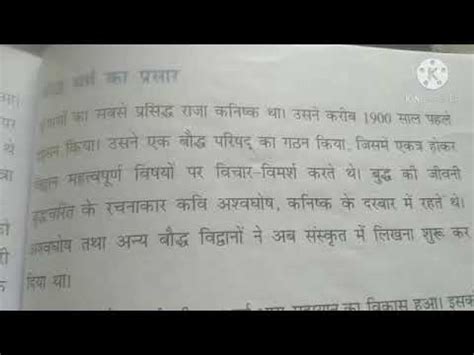 धर्म का प्रसार
का सबसे प्रसिद्ध राजा कनिष्क था। उसने करीब 1900 साल पहले
किया। उसने एक बौद्ध परिषद् का गठन किया, जिसमें एकत्र होकर
महत्वपूर्ण विषयों पर विचार-विमर्श करते थे। बुद्ध की जीवनी
बुद्धचरित के रचनाकार कवि अश्वघोष, कनिष्क के दरबार में रहते थे।
अश्वघोष तथा अन्य बौद्ध विद्वानों ने अब संस्कृत में लिखना शुरू कर
दिया था।
का विकास हुआ। इसकी